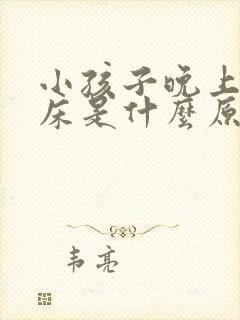 小孩子晚上
床是什麼原
韦亮